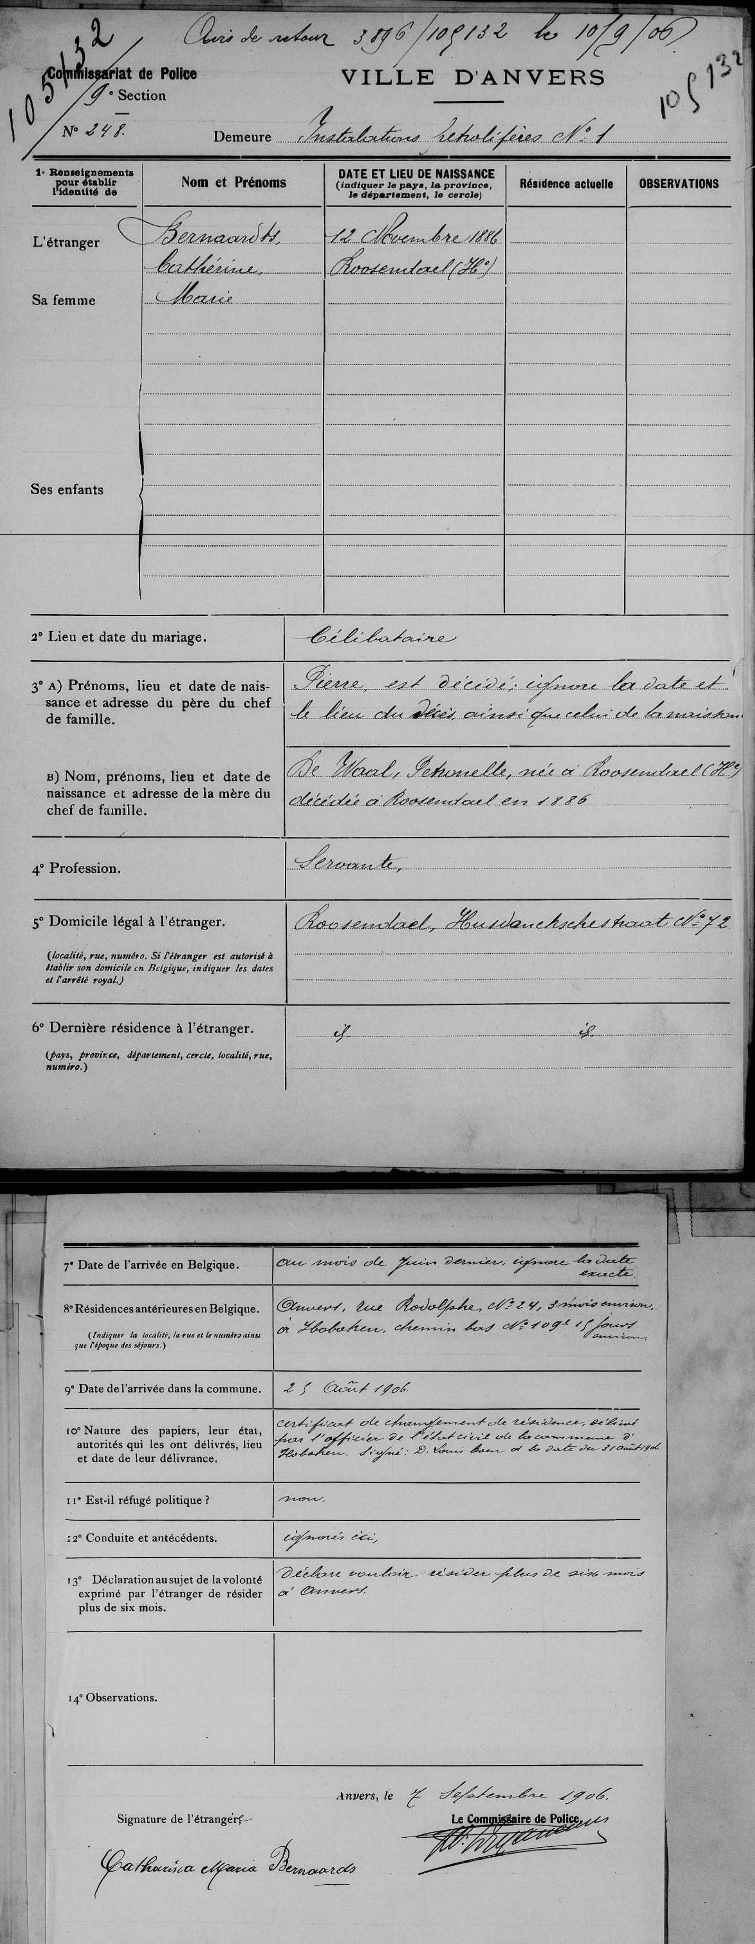 Avis de retour 3896/105132 le 10/9/06
105132
Commissariat de Police
9e Section
No 248.
VILLE D'ANVERS
105132
Demeure Installations pétrolifères No 1
1o Renseignements pour établir l'identité de
Nom et Prénoms
DATE ET LIEU DE NAISSANCE
(indiquer le pays, la province, le département, le cercle)
Résidence actuelle
OBSERVATIONS
L'étranger
Bernaards,
12 Novembre 1886
Cathérine,
Roosendael (Hde)
Sa femme
Marie
Ses enfants
2o Lieu et date du mariage.
Célibataire
3o A) Prénoms, lieu et date de nais-
sance et adresse du père du chef
de famille.
Pierre, est décédé; ignore la date et
le lieu du décès, ainsi que celui de la naissance
B) Nom, prénoms, lieu et date de
naissance et adresse de la mère du
chef de famille.
De Waal, Petronelle, née à Roosendael (Hde)
décédée à Roosendael en 1886
4o Profession.
Servante,
5o Domicile légal à l'étranger.
Roosendael, No 72
(localité, rue, numéro. Si l'étranger est autorisé à
établir son domicile en Belgique, indiquer les dates
et l'arrêté royal.)
6o Dernière résidence à l'étranger.
id. id.
(pays, province, département, cercle, localité, rue,
numéro.)
7o Date de l'arrivée en Belgique.
au mois de Juin dernier, ignore la date
exacte.
8o Résidences antérieures en Belgique.
(Indiquer la localité, la rue et le numéro ainsi
que l'époque des séjours.)
Anvers, rue Rodolphe, No 24, 3 mois environ,
à Hoboken, chemin bas No 109 15 jours
environ
9o Date de l'arrivée dans la commune.
25 Août 1906
10o Nature des papiers, leur état,
autorités qui les ont délivrés, lieu
et date de leur délivrance.
certificat de changement de résidence, délivré
par l'officier de l'état civil de la commune d'
Hoboken. Signé: D. Louis à la date du 31 août 1906
11o Est-il réfugé politique ?
non.
12o Conduite et antécédents.
ignorés ici,
13o Déclaration au sujet de la volonté
exprimé par l'étranger de résider
plus de six mois.
Déclare vouloir résider plus de six mois
à Anvers.
14o Observations.
Anvers, le 7 Septembre 1906.
Signature de l'étrangère
Le Commissaire de Police,
Catharina Maria Bernaards